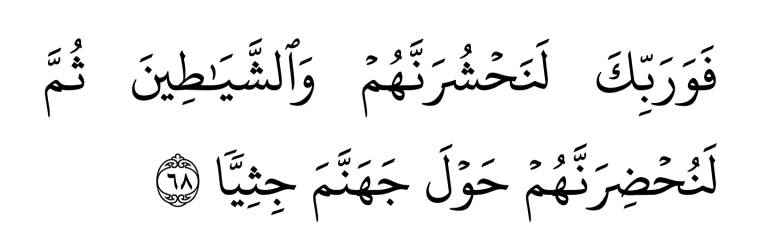 فَوَرَبِّكَ لَنَحْشُرَنَّهُمْ وَٱلشَّيَـٰطِينَ ثُمَّ
لَنُحْضِرَنَّهُمْ حَوْلَ جَهَنَّمَ جِثِيًّا ٦٨